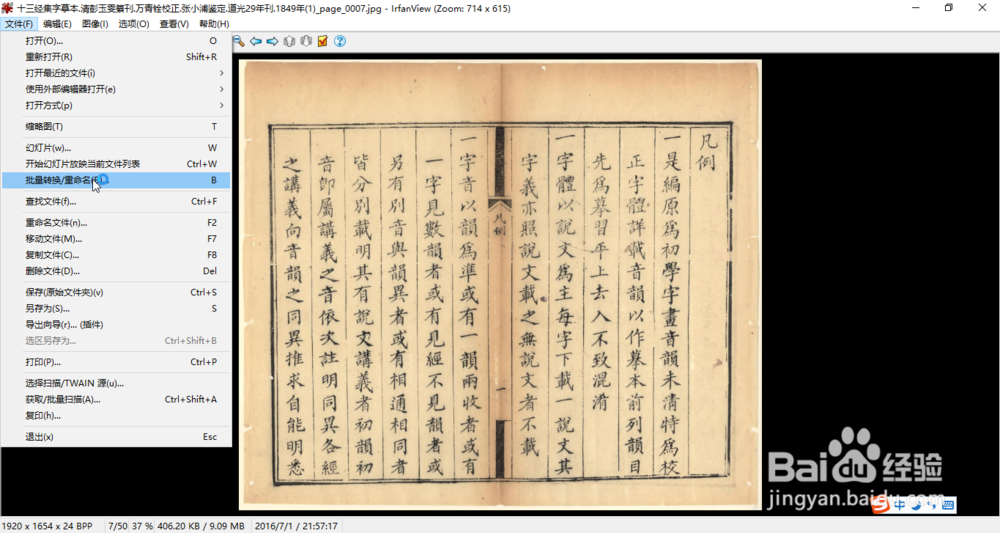 十三经集字摹本.清彭玉雯纂刊.万青铨校正.张小浦鉴定.道光29年刊.1849年(1)_page_0007.jpg - IrfanView (Zoom: 714 x 615)
文件(F) 编辑(E) 图像(I) 选项(O) 查看(V) 帮助(H)
打开(O)... O
重新打开(R) Shift+R
打开最近的文件(i)
使用外部编辑器打开(e)
打开方式(p)
缩略图(T) T
幻灯片(w)... W
开始幻灯片放映当前文件列表 Ctrl+W
批量转换/重命名 B
查找文件(f)... Ctrl+F
重命名文件(n)... F2
移动文件(M)... F7
复制文件(C)... F8
删除文件(D)... Del
保存(原始文件夹)(v) Ctrl+S
另存为(S)... S
导出向导(r)... (插件)
选区另存为... Ctrl+Shift+B
打印(P)... Ctrl+P
选择扫描/TWAIN 源(u)...
获取/批量扫描(A)... Ctrl+Shift+A
复印(h)...
退出(x) Esc
凡例
一是編原爲初學字畫音韻未清特爲校
正字體詳載音韻以作摹本前列韻目
先爲摹習平上去入不致混淆
一字體以說文爲主每字下載一說文其
字義亦照說文載之無說文者不載
凡例
一
一字音以韻爲準或有一韻兩收者或有
一字見數韻者或有見經不見韻者或
另有別音與韻異者或有相通相同者
皆分別載明其有說文講義者初韻初
音卽屬講義之音依次註明同異各經
之講義向音韻之同異推求自能明悉
Baidu 经验
jingyan.baidu.com
中
1920 x 1654 x 24 BPP 7/50 37 % 406.20 KB / 9.09 MB 2016/7/1 / 21:57:17